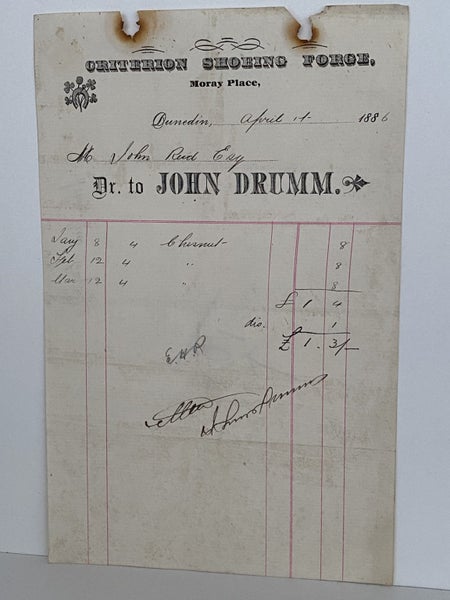 CRITERION SHOEING FORGE,
Moray Place,
Dunedin, April 1st 1886
Mr John Reid Esq
Dr. to JOHN DRUMM.
Jany 8 4 Chesnut 8
Feb 12 4 " 8
Mar 12 4 " 8
£ 1 4
dis. 1
£ 1. 3/-
E.H.R
Settled
John Drumm